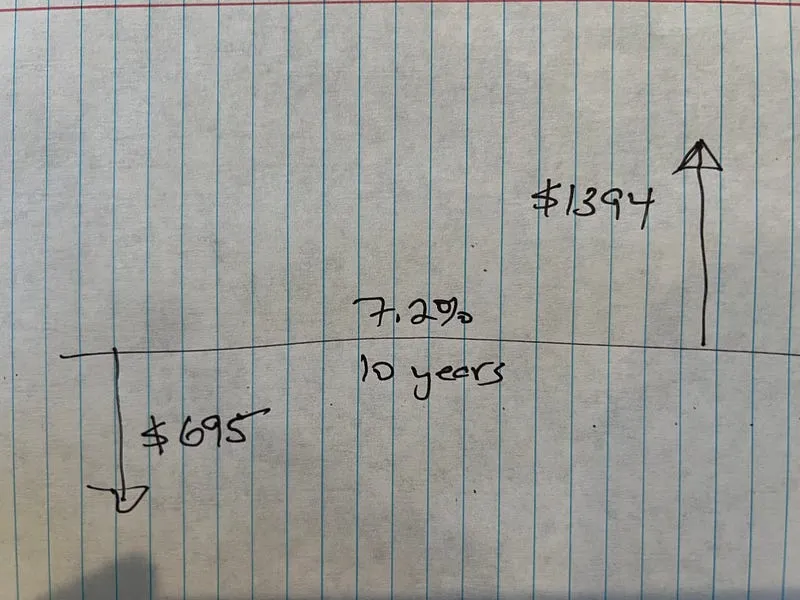 $1394
7.2%
10 years
$695